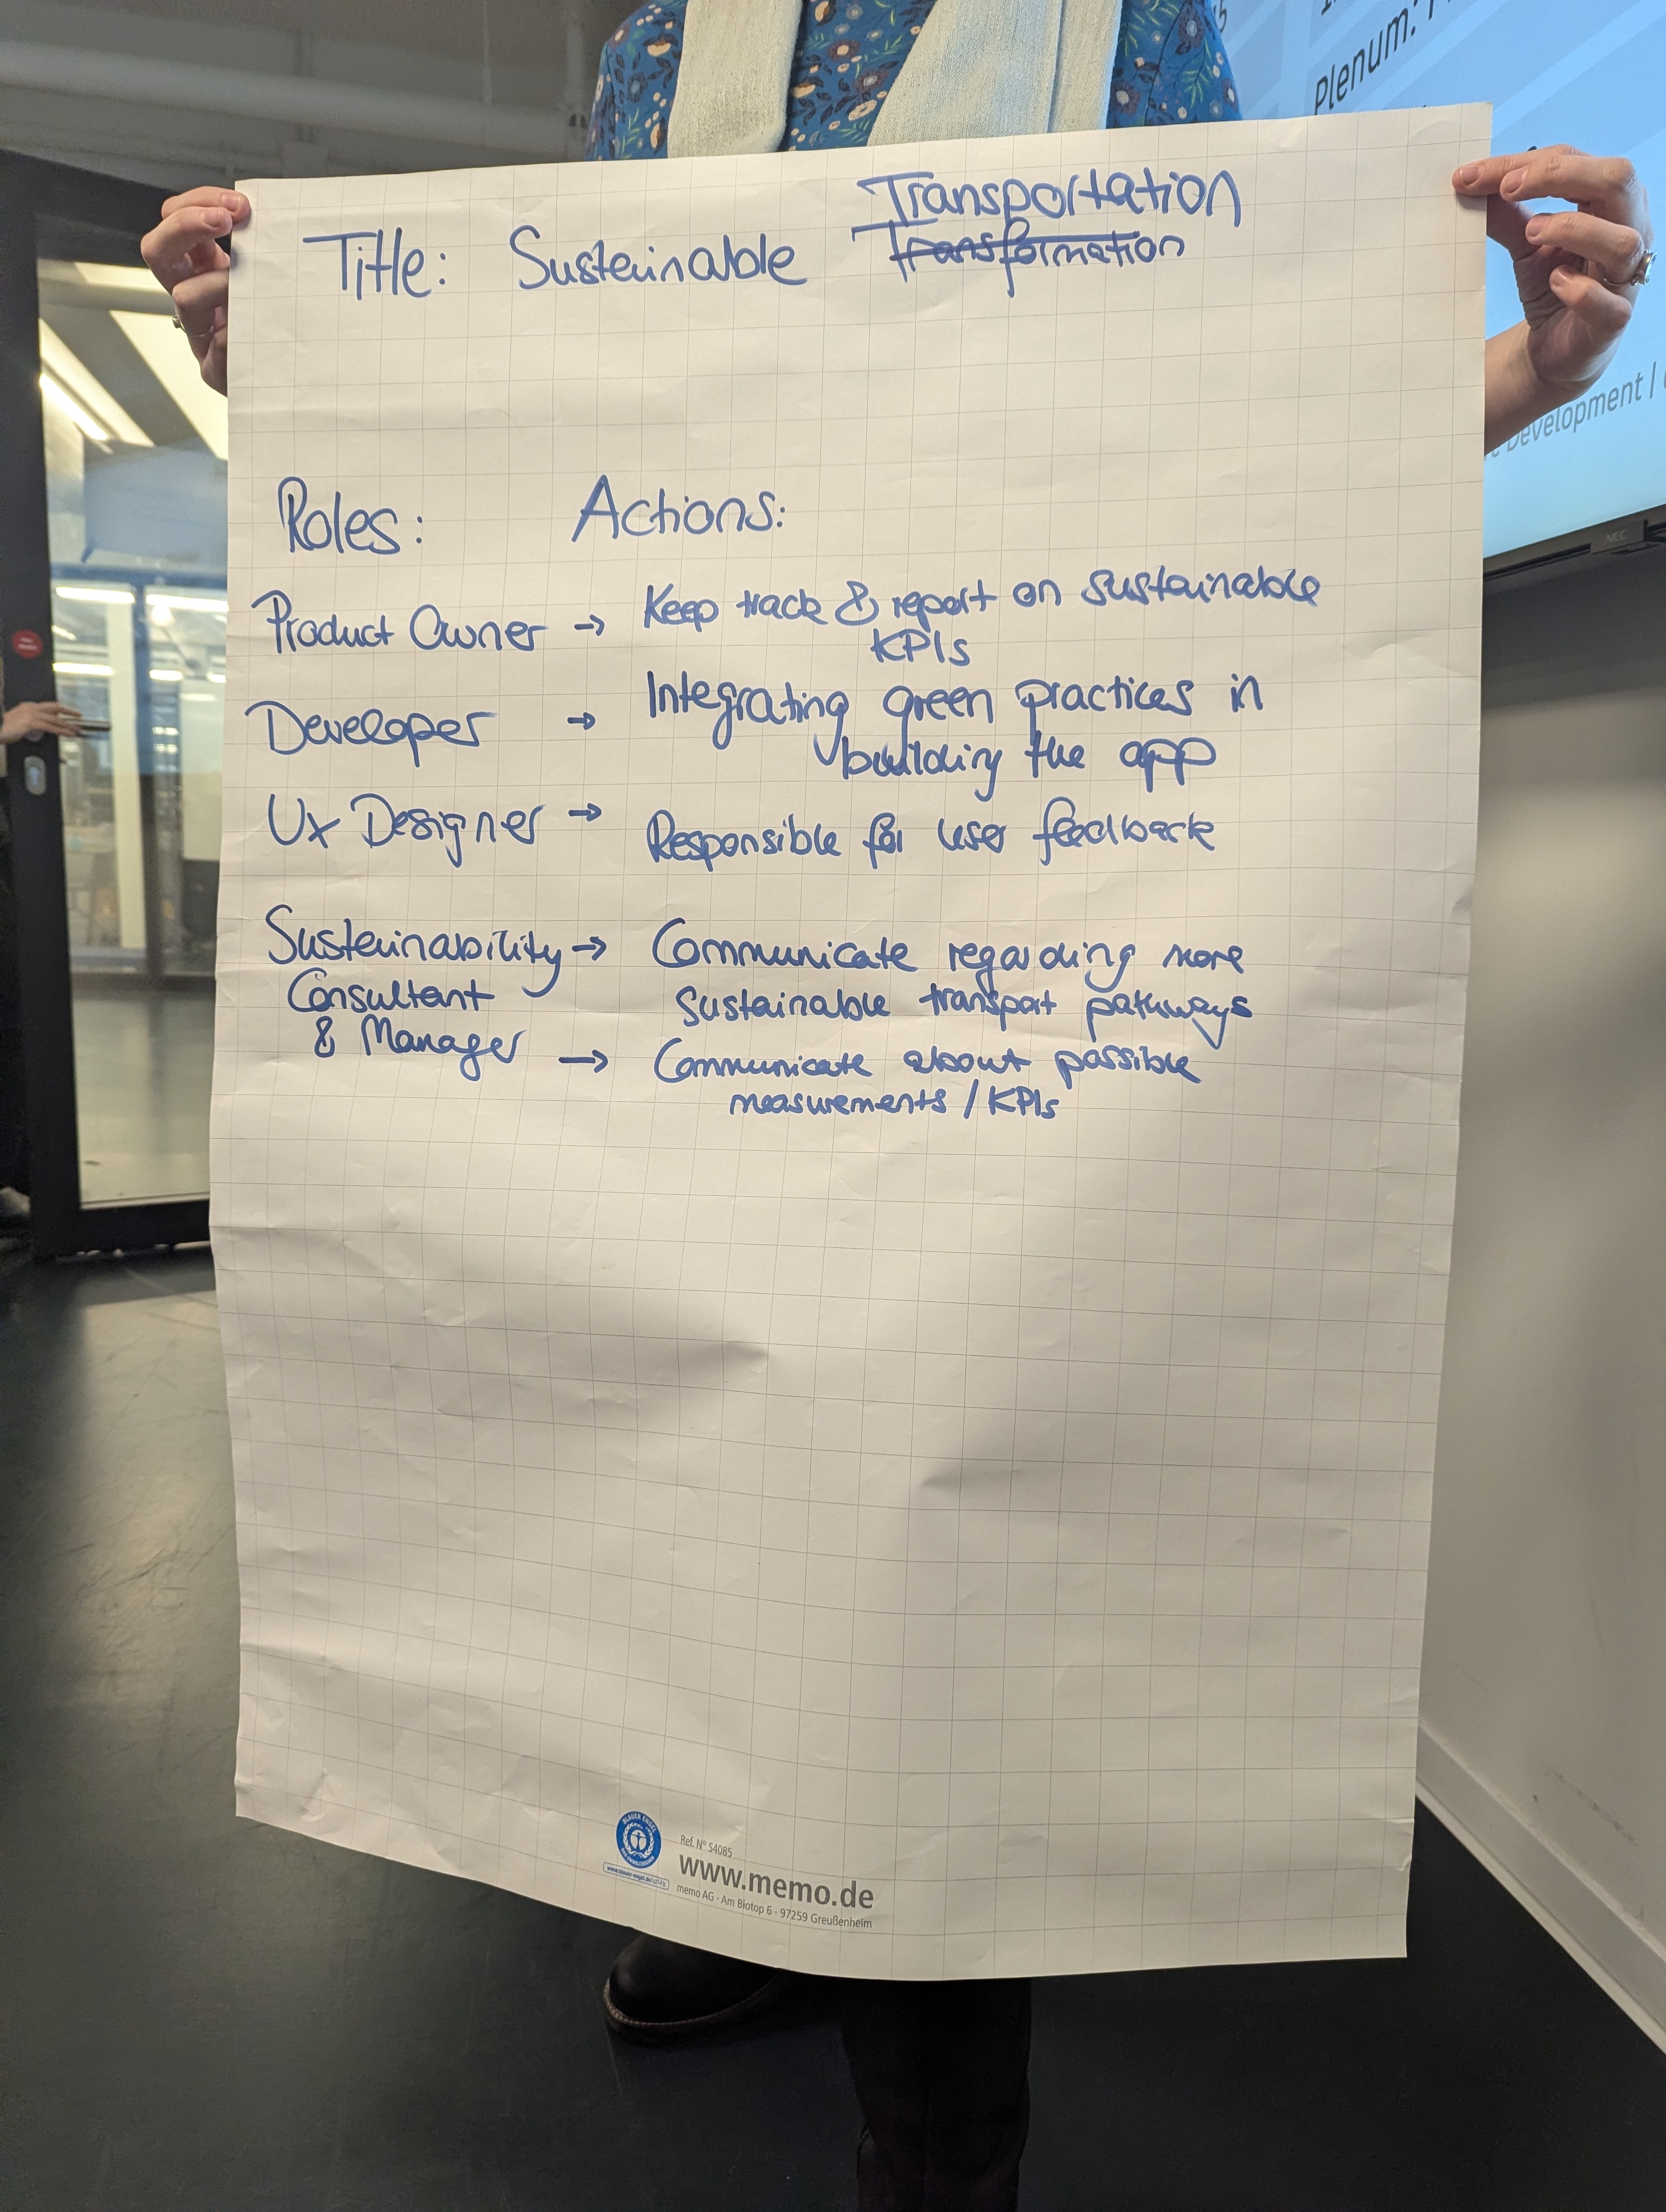 Plenum:
Development |
NEC
Transportation
Title: Sustainable Transformation
Roles: Actions:
Product Owner → Keep track & report on sustainable
KPIs
Developer → Integrating green practices in
building the app
Ux Designer → Responsible for user feedback
Sustainability → Communicate regarding more
Consultant sustainable transport pathways
& Manager → Communicate about possible
measurements / KPIs
BLAUER ENGEL
Ref. N° S4085
www.memo.de
memo AG · Am Biotop 6 · 97259 Greußenheim